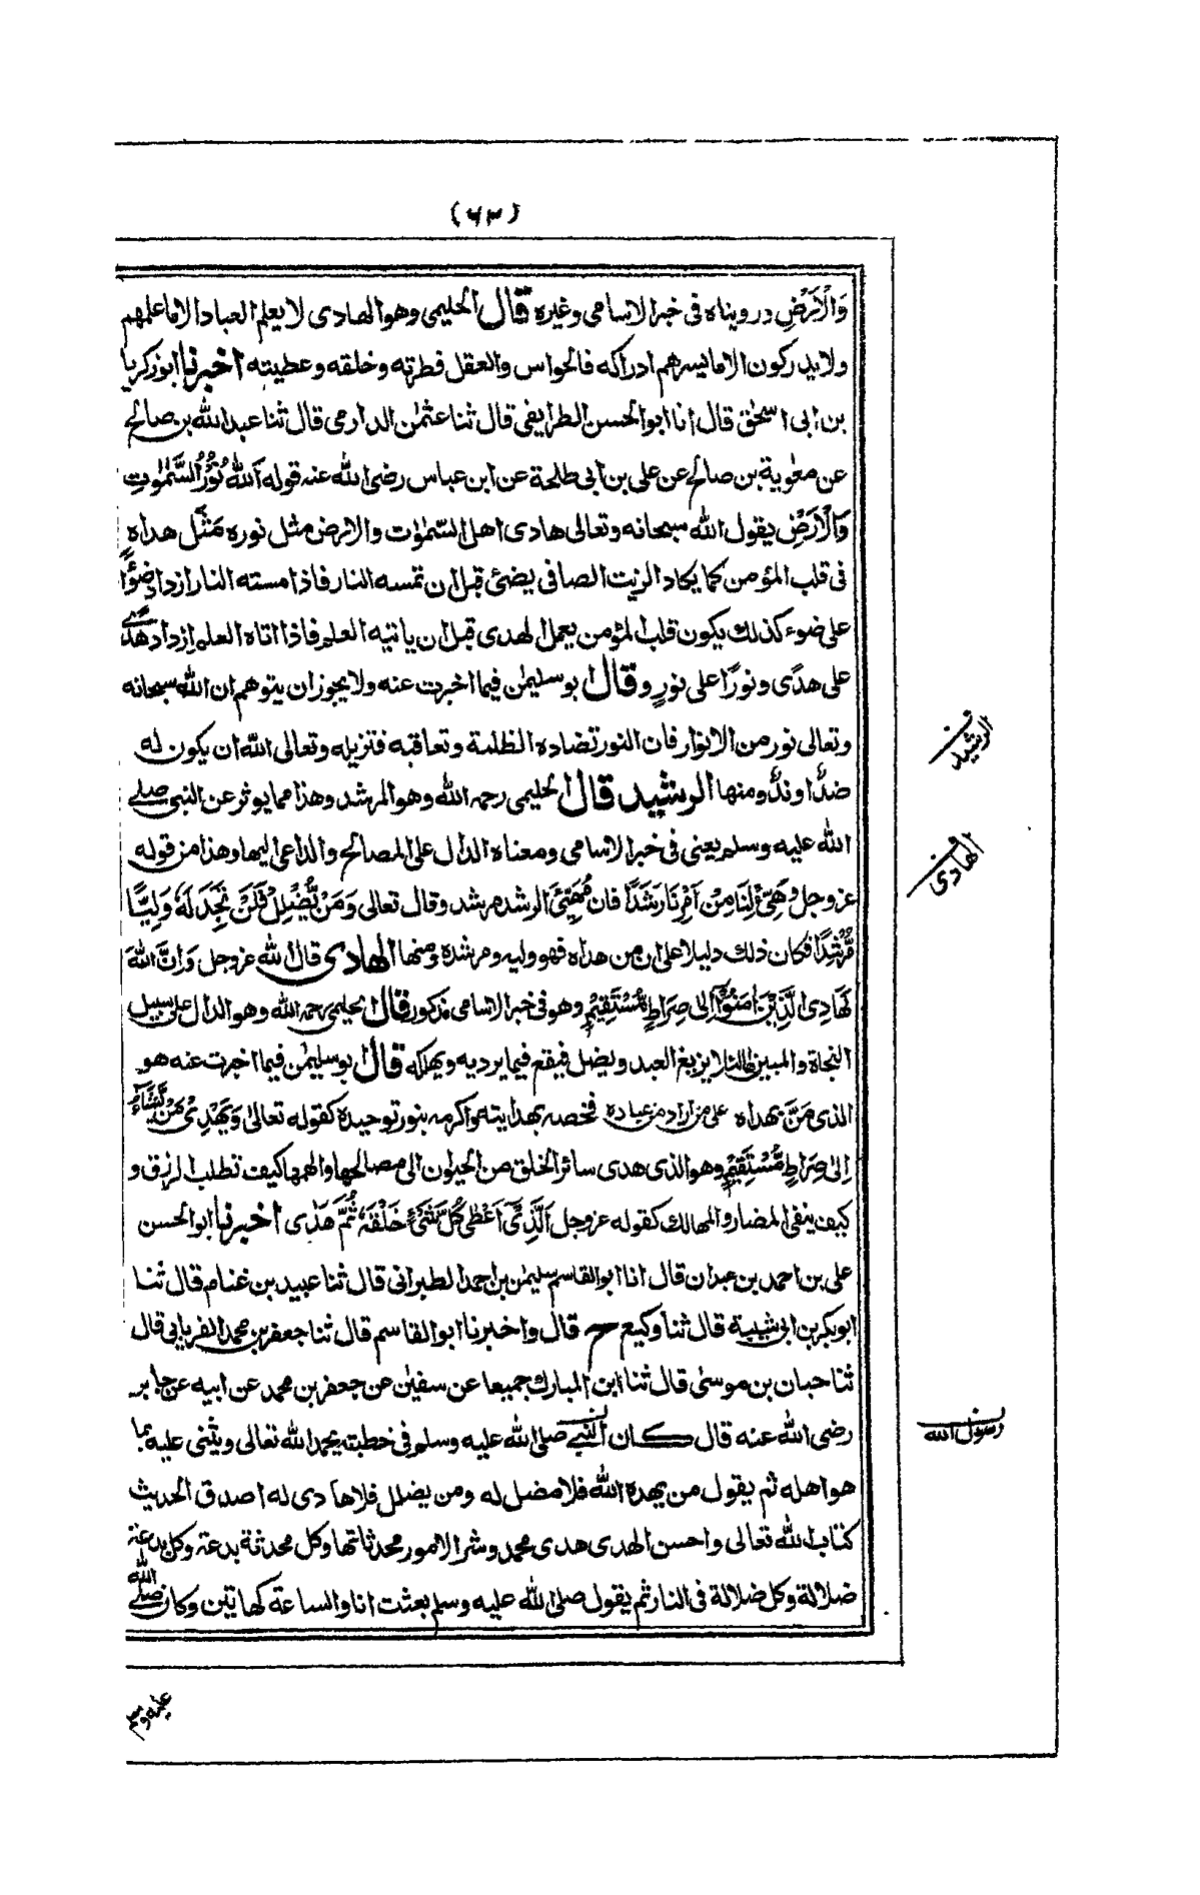 (٦٣)
وَالْاَرْضِ درويناه فى خبر الاسامى وغيره قال الحليمى وهو الهادى لا يعلم العباد الا ما علمهم
ولا يدركون الا ما يسر هم ادراكه فالحواس والعقل فطرته وخلقه وعطيته اخبرنا ابو زكريا
بن ابى اسحٰق قال انا ابو الحسن الطرايفى قال ثنا عثمٰن الدارمى قال ثنا عبد الله بن صالح
عن معٰوية بن صالح عن على بن ابى طلحة عن ابن عباس رضى الله عنه قوله اَللهُ نُوْرُ السَّمٰوٰتِ
وَالْاَرْضِ يقول الله سبحانه وتعالى هادى اهل السّمٰوٰت والارض مثل نوره مَثَل هداه
فى قلب المؤمن كما يكاد الزيت الصافى يضئ قبل ان تمسه النار فاذا مسته النار ازداد ضَوْأً
على ضوء كذلك يكون قلب المؤمن يعمل الهدى قبل ان ياتيه العلم فاذا اتاه العلم ازداد هدًى
على هدًى ونورًا على نورٍ وقال ابو سليمٰن فيما اخبرت عنه ولا يجوز ان يتوهم ان الله سبحانه
وتعالى نور من الانوار فان النور تضاده الظلمة وتعاقبه فتزيله وتعالى الله ان يكون له
ضدٌّ او ندٌّ ومنها الرشيد قال الحليمى رحمه الله وهو المرشد وهذا مما يوثر عن النبى صلى
الله عليه وسلم يعنى فى خبر الاسامى ومعناه الدال على المصالح والداعى اليها وهذا من قوله
عز وجل وَهَيِّئْ لَنَا مِنْ اَمْرِنَا رَشَدًا فان مُهَيِّئَ الرشد مرشد وقال تعالى وَمَنْ يُّضْلِلْ فَلَنْ تَجِدَ لَهٗ وَلِيًّا
مُّرْشِدًا فكان ذلك دليلا على ان من هداه فهو وليه ومرشده ومنها الهادى قال الله عز وجل وَاِنَّ اللهَ
لَهَادِى الَّذِيْنَ اٰمَنُوْٓا اِلىٰ صِرَاطٍ مُّسْتَقِيْمٍ وهو فى خبر الاسامى مذكور قال الحليمى رحمه الله وهو الدال على سبيل
النجاة والمبين لها لئلا يزيغ العبد ويضل فيقع فيما يرديه ويهلكه قال ابو سليمٰن فيما اخبرت عنه هو
الذى مَنَّ بهداه على من اراد من عباده فخصه بهدايته واكرمه بنور توحيده كقوله تعالىٰ وَيَهْدِىْ مَنْ يَّشَآءُ
اِلىٰ صِرَاطٍ مُّسْتَقِيْمٍ وهو الذى هدى سائر الخلق من الحيوان الى مصالحها والهمها كيف تطلب الرزق و
كيف يتقى المضار والمهالك كقوله عز وجل اَلَّذِىْٓ اَعْطٰى كُلَّ شَىْءٍ خَلْقَهٗ ثُمَّ هَدٰى اخبرنا ابو الحسن
على بن احمد بن عبدان قال انا ابو القاسم سليمٰن بن احمد الطبرانى قال ثنا عبيد بن غنام قال ثنا
ابو بكر بن ابى شيبة قال ثنا وكيع ح قال واخبرنا ابو القاسم قال ثنا جعفر بن محمد الفريابى قال
ثنا حبان بن موسىٰ قال ثنا ابن المبارك جميعا عن سفيٰن عن جعفر بن محمد عن ابيه عن جابر
رضى الله عنه قال كان النبى صلى الله عليه وسلم فى خطبته يحمد الله تعالى ويثنى عليه بما
هو اهله ثم يقول من يهده الله فلا مضل له ومن يضلل فلا هادى له اصدق الحديث
كتاب الله تعالى واحسن الهدى هدى محمد وشر الامور محدثاتها وكل محدثة بدعة وكل بدعة
ضلالة وكل ضلالة فى النار ثم يقول صلى الله عليه وسلم بعثت انا والساعة كهاتين وكان صلى الله
عليه وسلم
الرشيد
الهادى
رسول الله